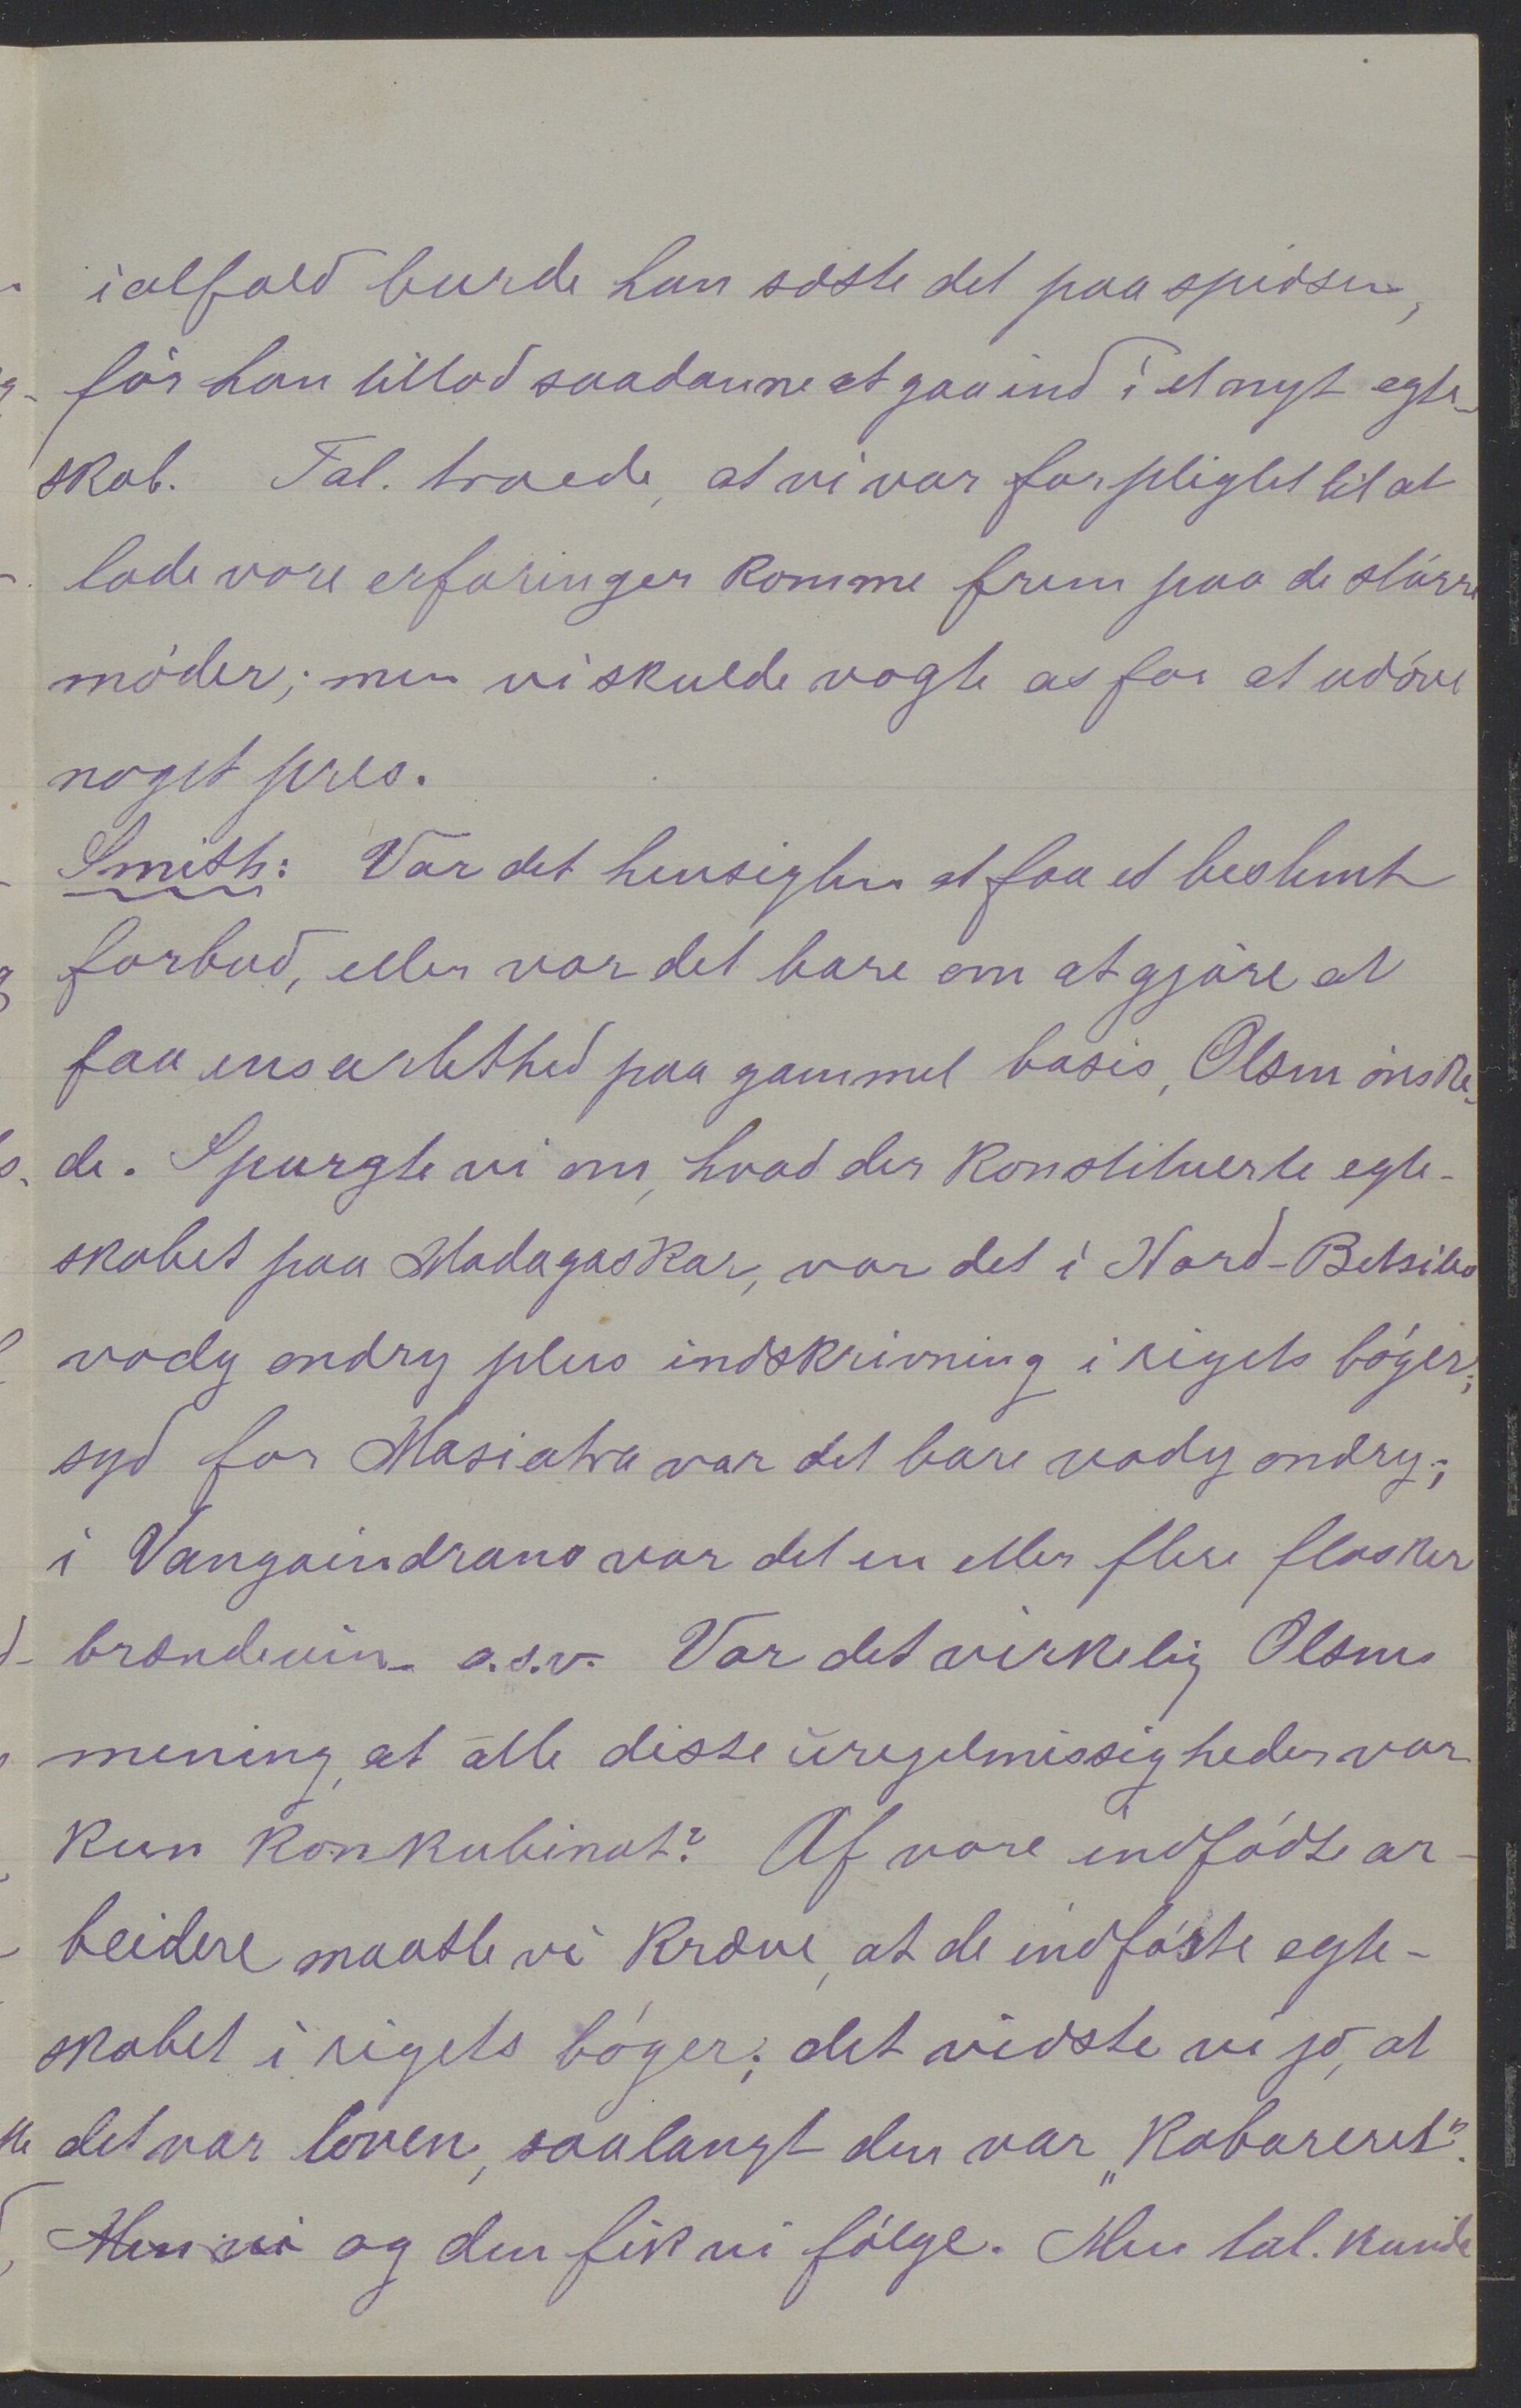 ialfald burde han sætte det paa spidsen,
før han tillod saadanne at gaa ind i et nyt egte-
skab. Tal. troede, at vi var forpligtet til at
lade vore erfaringer komme frem paa de større
møder; men vi skulde vogte os for at udøve
noget pres.
Smith: Var det hensigten at faa et bestemt
forbud, eller var det bare om at gjøre at
faa ensartethed paa gammel basis, Olsen ønske-
de. Spurgte vi om, hvad der konstituerte egte-
skabet paa Madagaskar, var det i Nord-Betsileo
vody ondry plus indskrivning i rigets bøger;
syd for Masiatra var det bare vody ondry;
i Vangaindrano var det en eller flere flasker
brændevin o.s.v. Var det virkelig Olsens
mening, at alle disse uregelmæssigheder var
kun konkubinat? Af vore indfødte ar-
beidere maatte vi kræve, at de indførte egte-
skabet i rigets bøger; det vidste vi jo, at
det var loven, saalangt den var „kabareret".
Men vi og den fik vi følge. Men tal. kunde